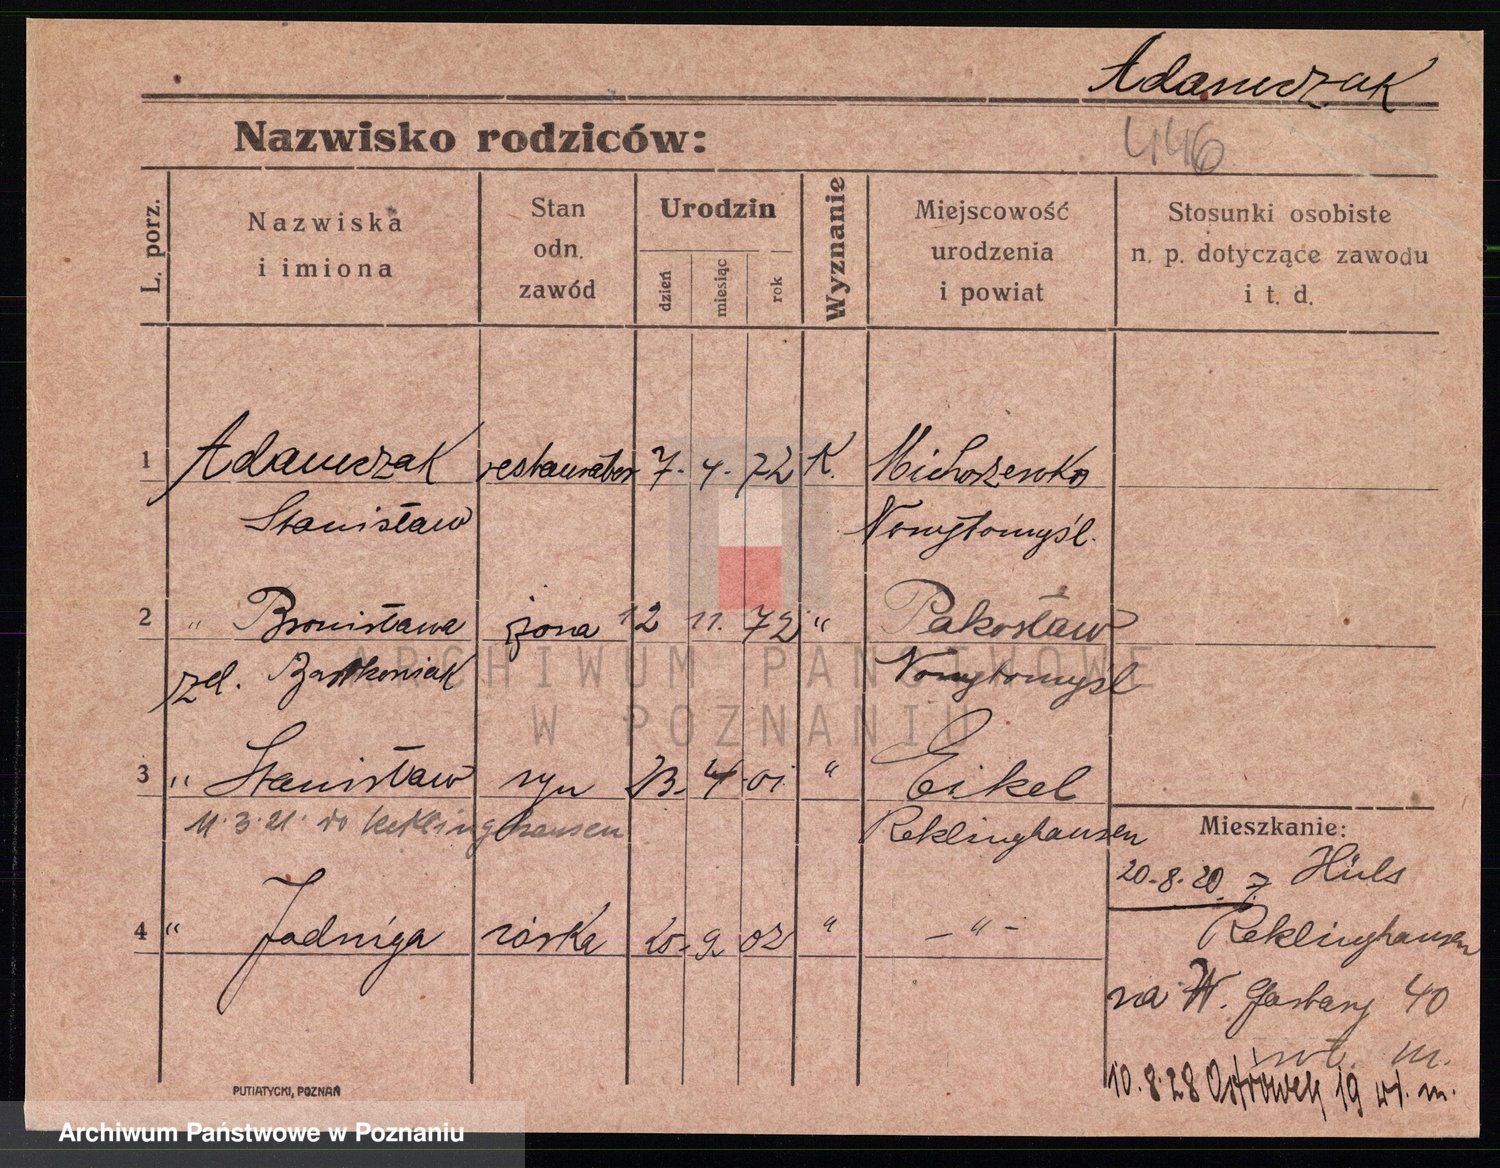 Adamczak
Nazwisko rodziców:
446
L. porz.
Nazwiska
i imiona
Stan
odn.
zawód
Urodzin
dzień
miesiąc
rok
Wyznanie
Miejscowość
urodzenia
i powiat
Stosunki osobiste
n. p. dotyczące zawodu
i t. d.
1 Adamczak restaurator 7. 4. 72 K. Michorzewko
Stanisław Nowytomyśl.
2 " Bronisława żona 12 11. 72 " Pakosław
zd. Bartkowiak Nowytomyśl
3 " Stanisław syn 23. 4. 01 " Eikel
11.3.21. do Recklinghausen Reklinghausen
4 " Jadwiga córka 20. 9 02 " - " -
Mieszkanie:
20.8.20 z Hüls
Reklinghausen
na W. Garbary 40
wł. m.
10.8.28 Ostrówek 19 wł. m.
PUTIATYCKI, POZNAŃ
ARCHIWUM PAŃSTWOWE
W POZNANIU
Archiwum Państwowe w Poznaniu